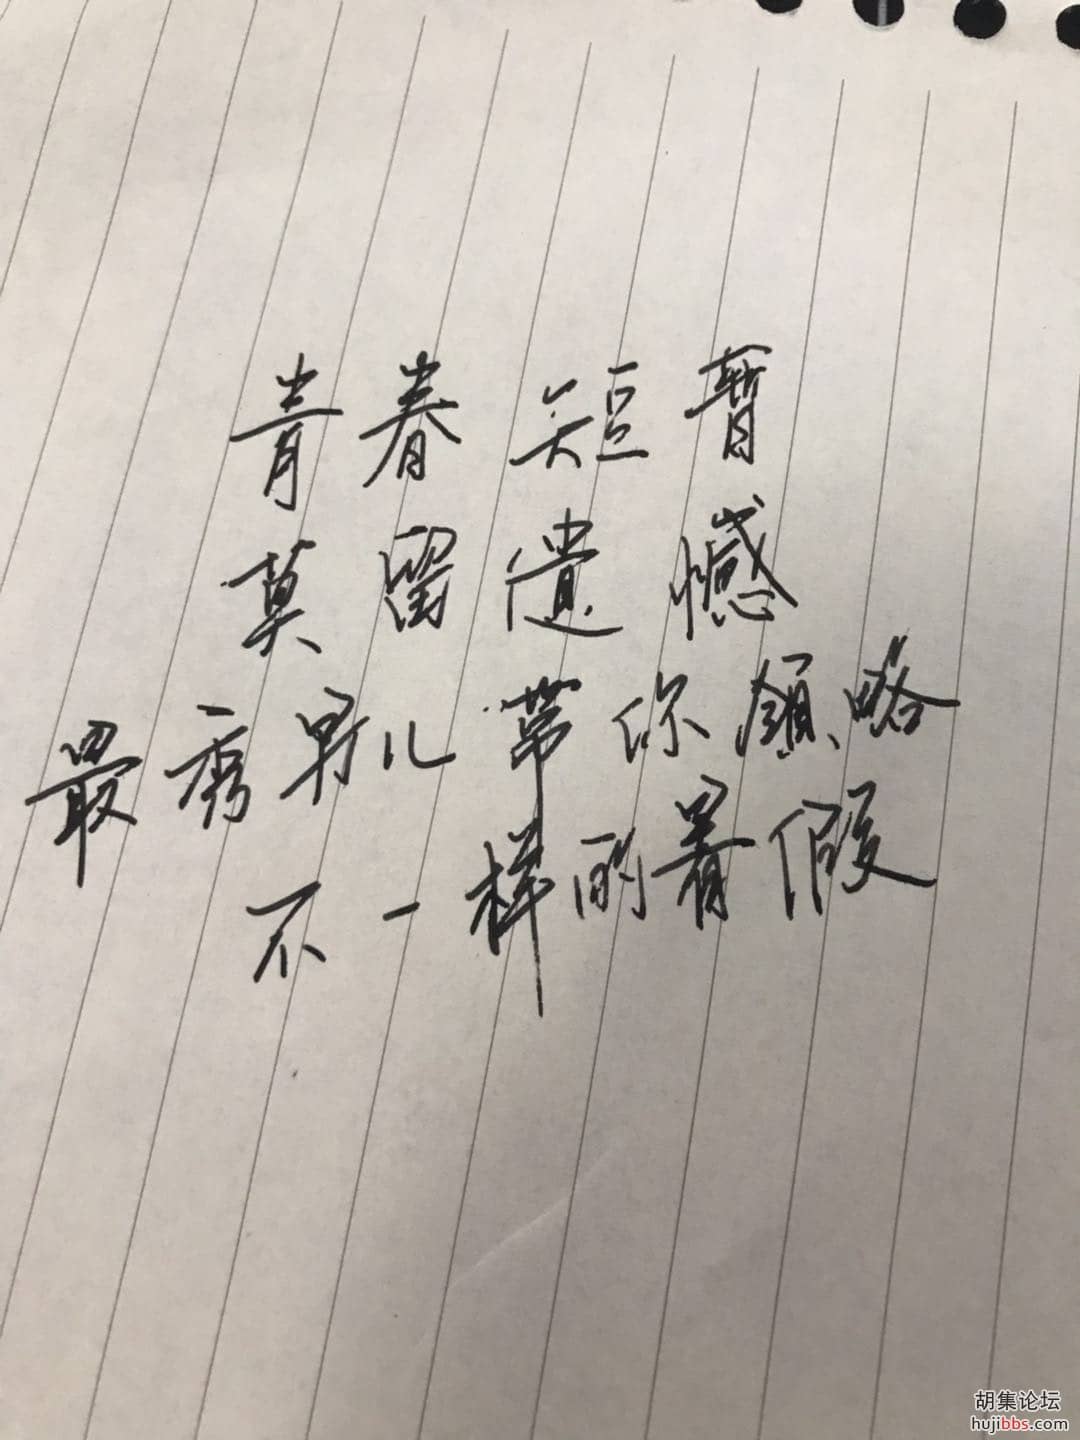 青春短暂
莫留遗憾
最秀野儿带你领略
不一样的暑假
胡集论坛
hujibbs.com